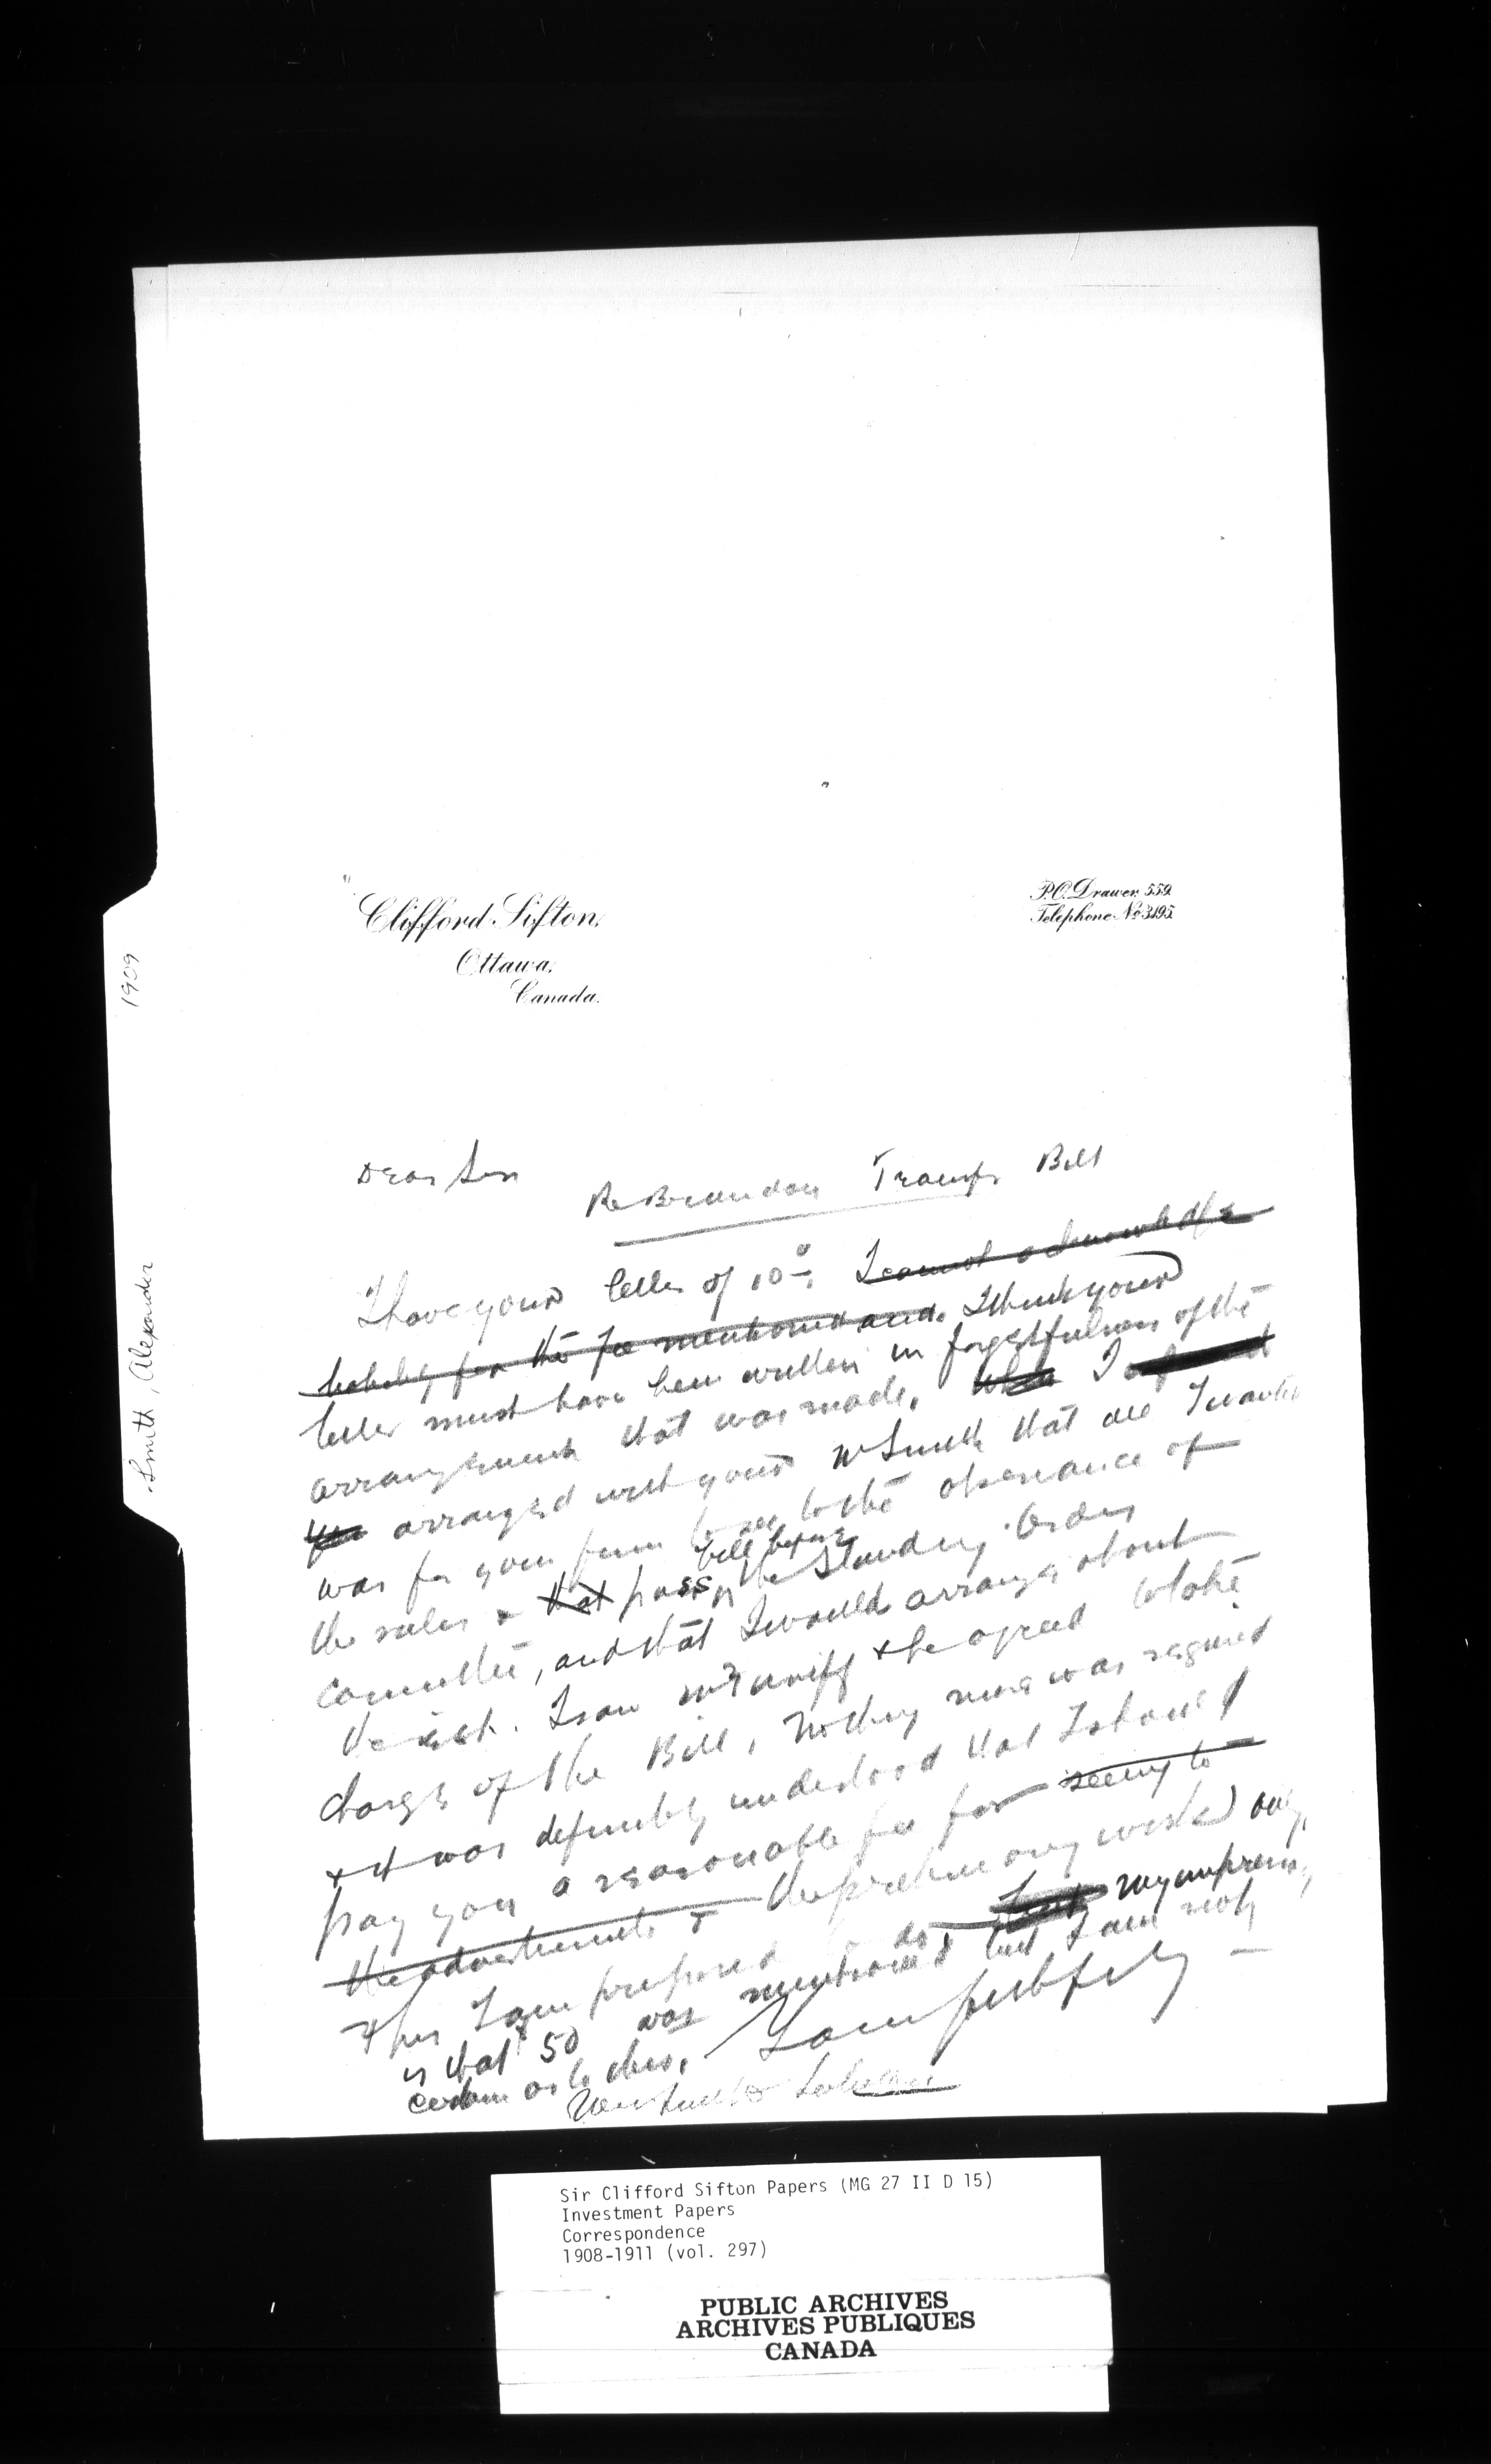 Clifford Sifton,
Ottawa,
Canada.
P.O. Drawer 559.
Telephone No 3195.
1909
Smith, Alexander
Dear Sirs
Re Brandon Transfer Bill
I have your letter of 10th. I cannot acknowledge
liability for the fee mentioned and. I think your
letter must have been written in forgetfulness of the
arrangement that was made. When I
you arranged with your Mr Smith that all I wanted
was for your firm to see to the observance of
the rules & that pass bill before the Standing Orders
Committee, and that I would arrange about
the rest. I saw & he agreed to take
charge of the Bill, nothing more was required
& it was definitely understood that I should
pay you a reasonable fee for seeing to
the advertisements & the preliminary work only.
This I am prepared to do & my impression
is that 50 was mentioned but I am not
certain as to this.
Yours faithfully
Messrs Smith &
Sir Clifford Sifton Papers (MG 27 II D 15)
Investment Papers
Correspondence
1908-1911 (vol. 297)
PUBLIC ARCHIVES
ARCHIVES PUBLIQUES
CANADA